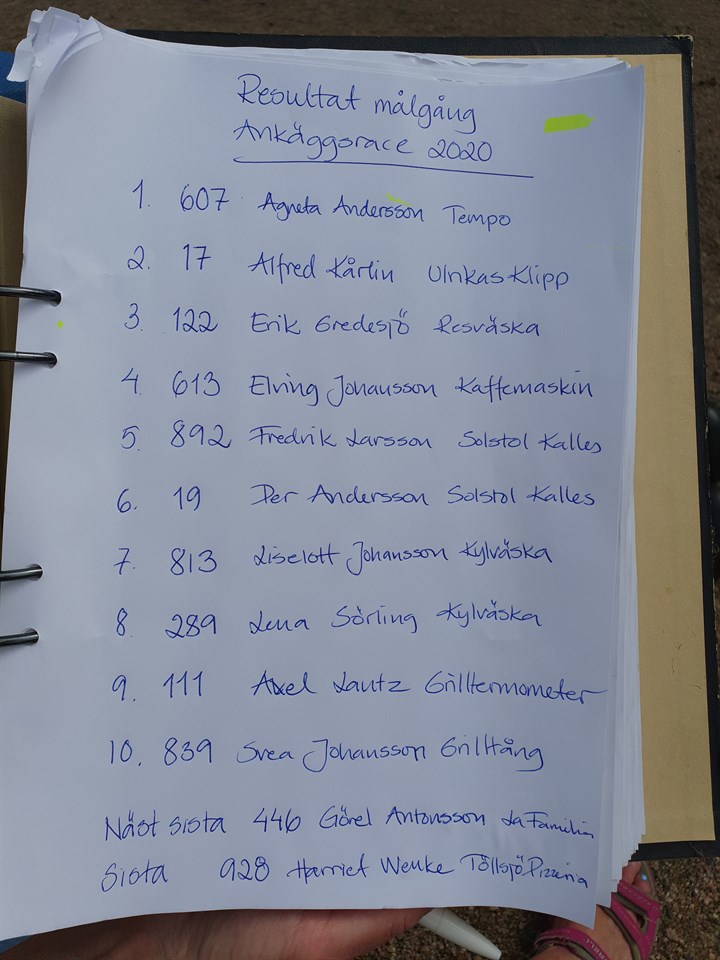 Resultat målgång
Ankäggsrace 2020
1. 607 Agneta Andersson Tempo
2. 17 Alfred Kårlin Ulrikas Klipp
3. 122 Erik Gredesjö Resväska
4. 613 Elving Johansson Kaffemaskin
5. 892 Fredrik Larsson Solstol Kalles
6. 19 Per Andersson Solstol Kalles
7. 813 Liselott Johansson Kylväska
8. 289 Lena Sörling Kylväska
9. 111 Axel Lautz Grilltermometer
10. 839 Svea Johansson Grilltång
Näst sista 446 Görel Antonsson La Familia
Sista 928 Harriet Wenke Töllsjö Pizzeria